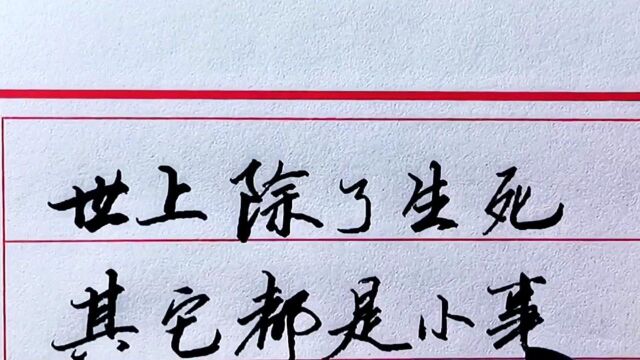 世上除了生死
其它都是小事